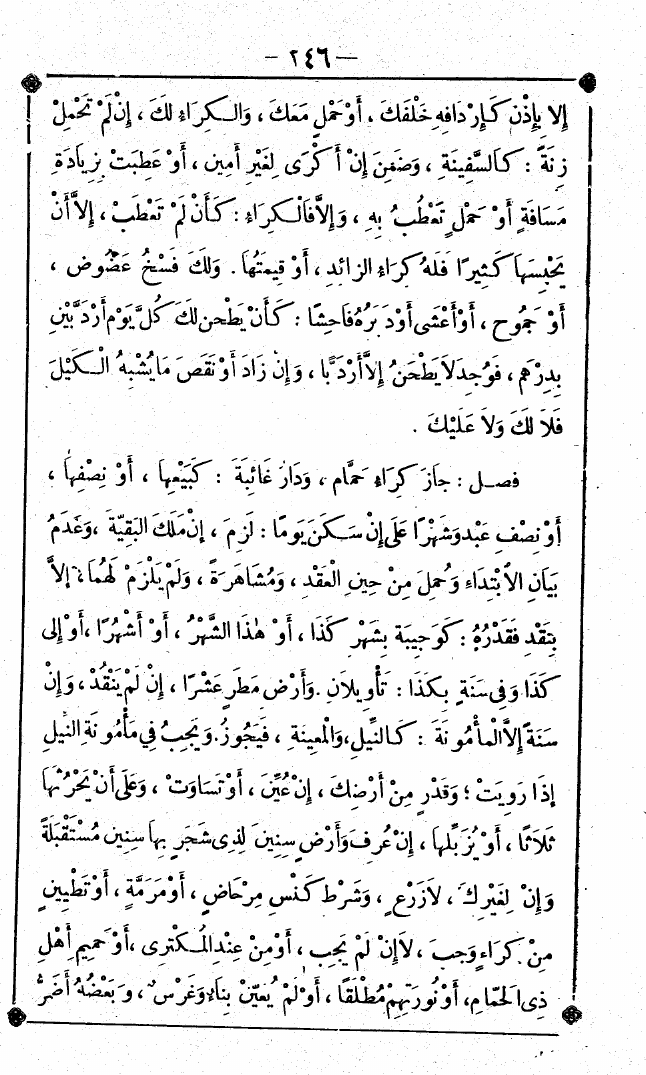 — ٢٤٦ —
إلا بِإِذْنٍ كَإِرْدَافِهِ خَلْفَكَ ، أَوْ حَمْلٍ مَعَكَ ، وَالْكِرَاءُ لَكَ ، إِنْ لَمْ تَحْمِلْ
زِنَةً : كَالسَّفِينَةِ ، وَضَمِنَ إِنْ أَكْرَى لِغَيْرِ أَمِينٍ ، أَوْ عَطِبَتْ بِزِيَادَةِ
مَسَافَةٍ أَوْ حَمْلٍ تَعْطَبُ بِهِ ، وَإِلاَّ فَالْكِرَاءُ : كَأَنْ لَمْ تَعْطَبْ ، إِلاَّ أَنْ
يَحْبِسَهَا كَثِيرًا فَلَهُ كِرَاءُ الزائِدِ ، أَوْ قِيمَتُهَا . وَلَكَ فَسْخُ عَضُوضٍ ،
أَوْ جَمُوحٍ ، أَوْ أَعْشَى أَوْ دَبَرُهُ فَاحِشًا : كَأَنْ يَطْحَنَ لَكَ كُلَّ يَوْمٍ أَرْدَبَّيْنِ
بِدِرْهَمٍ ، فَوُجِدَ لاَ يَطْحَنُ إِلاَّ أَرْدَبًّا ، وَإِنْ زَادَ أَوْ نَقَصَ مَا يُشْبِهُ الْكَيْلَ
فَلاَ لَكَ وَلاَ عَلَيْكَ .
فصل : جَازَ كِرَاءُ حَمَّامٍ ، وَدَارٍ غَائِبَةٍ : كَبَيْعِهَا ، أَوْ نِصْفِهَا ،
أَوْ نِصْفِ عَبْدٍ وَشَهْرًا عَلَى إِنْ سَكَنَ يَوْمًا : لَزِمَ ، إِنْ مَلَكَ الْبَقِيَّةَ ، وَعَدَمُ
بَيَانِ الاِبْتِدَاءِ وَحُمِلَ مِنْ حِينِ الْعَقْدِ ، وَمُشَاهَرَةً ، وَلَمْ يَلْزَمْ لَهُمَا ، إِلاَّ
بِنَقْدٍ فَقَدْرُهُ : كَوَجِيبَةٍ بِشَهْرِ كَذَا ، أَوْ هٰذَا الشَّهْرُ ، أَوْ أَشْهُرًا ، أَوْ إِلَى
كَذَا وَفِي سَنَةٍ بِكَذَا : تَأْوِيلاَنِ . وَأَرْضِ مَطَرٍ عَشْرًا ، إِنْ لَمْ يَنْقُدْ ، وَإِنْ
سَنَةً إِلاَّ الْمَأْمُونَةَ : كَالنِّيلِ ، وَالْمَعِينَةِ ، فَيَجُوزُ . وَيَجِبُ فِي مَأْمُونَةِ النِّيلِ
إِذَا رَوِيَتْ ؛ وَقَدْرٍ مِنْ أَرْضِكَ ، إِنْ عُيِّنَ ، أَوْ تَسَاوَتْ ، وَعَلَى أَنْ يَحْرُثَهَا
ثَلاَثًا ، أَوْ يُزَبِّلَهَا ، إِنْ عُرِفَ وَأَرْضٍ سِنِينَ لِذِي شَجَرٍ بِهَا سِنِينَ مُسْتَقْبَلَةً
وَإِنْ لِغَيْرِكَ ، لاَ زَرْعٍ ، وَشَرْطُ كَنْسِ مِرْحَاضٍ ، أَوْ مَرَمَّةٍ ، أَوْ تَطْيِينٍ
مِنْ كِرَاءٍ وَجَبَ ، لاَ إِنْ لَمْ يَجِبْ ، أَوْ مِنْ عِنْدِ الْمُكْتَرِى ، أَوْ حَمِيمِ أَهْلِ
ذِى الْحَمَّامِ ، أَوْ نُورَتِهِمْ مُطْلَقًا ، أَوْ لَمْ يُعَيَّنْ بِنَاءٌ وَغَرْسٌ ، وَبَعْضُهُ أَضَرُّ